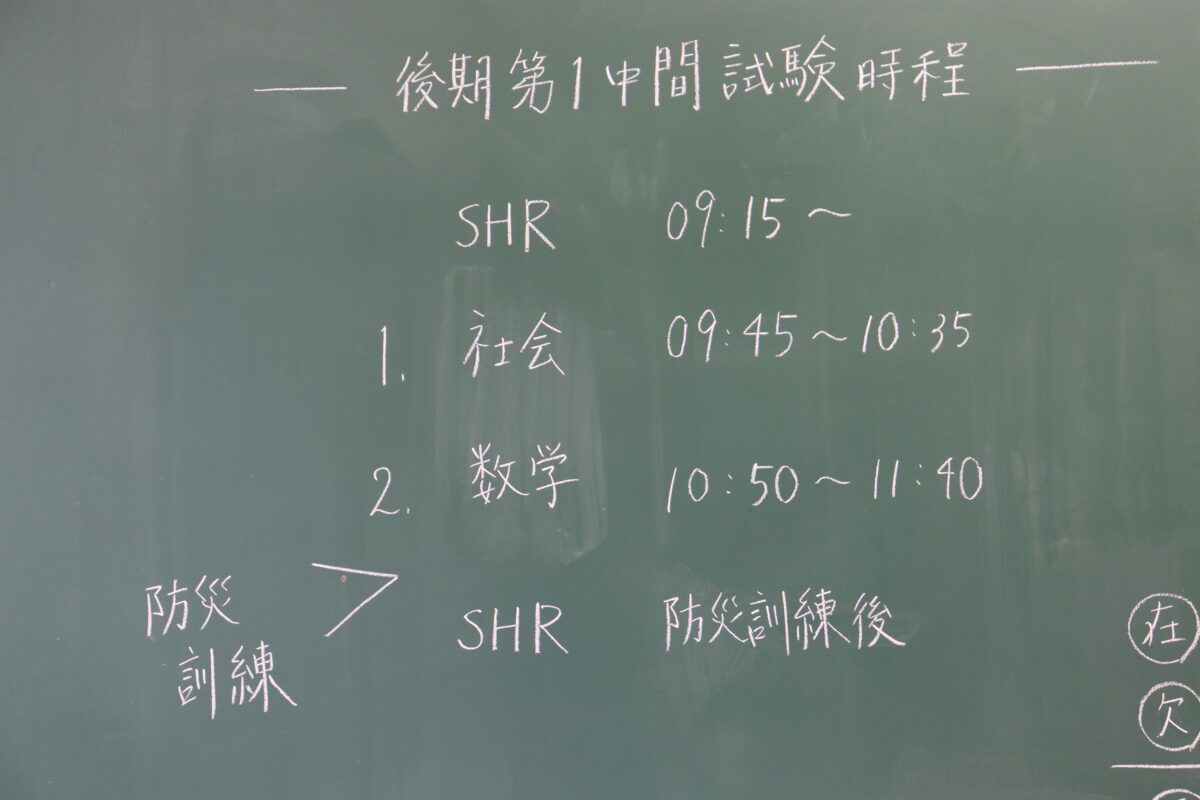 後期第1中間試験時程
SHR 09:15～
1. 社会 09:45～10:35
2. 数学 10:50～11:40
防災
訓練
SHR 防災訓練後
在
欠